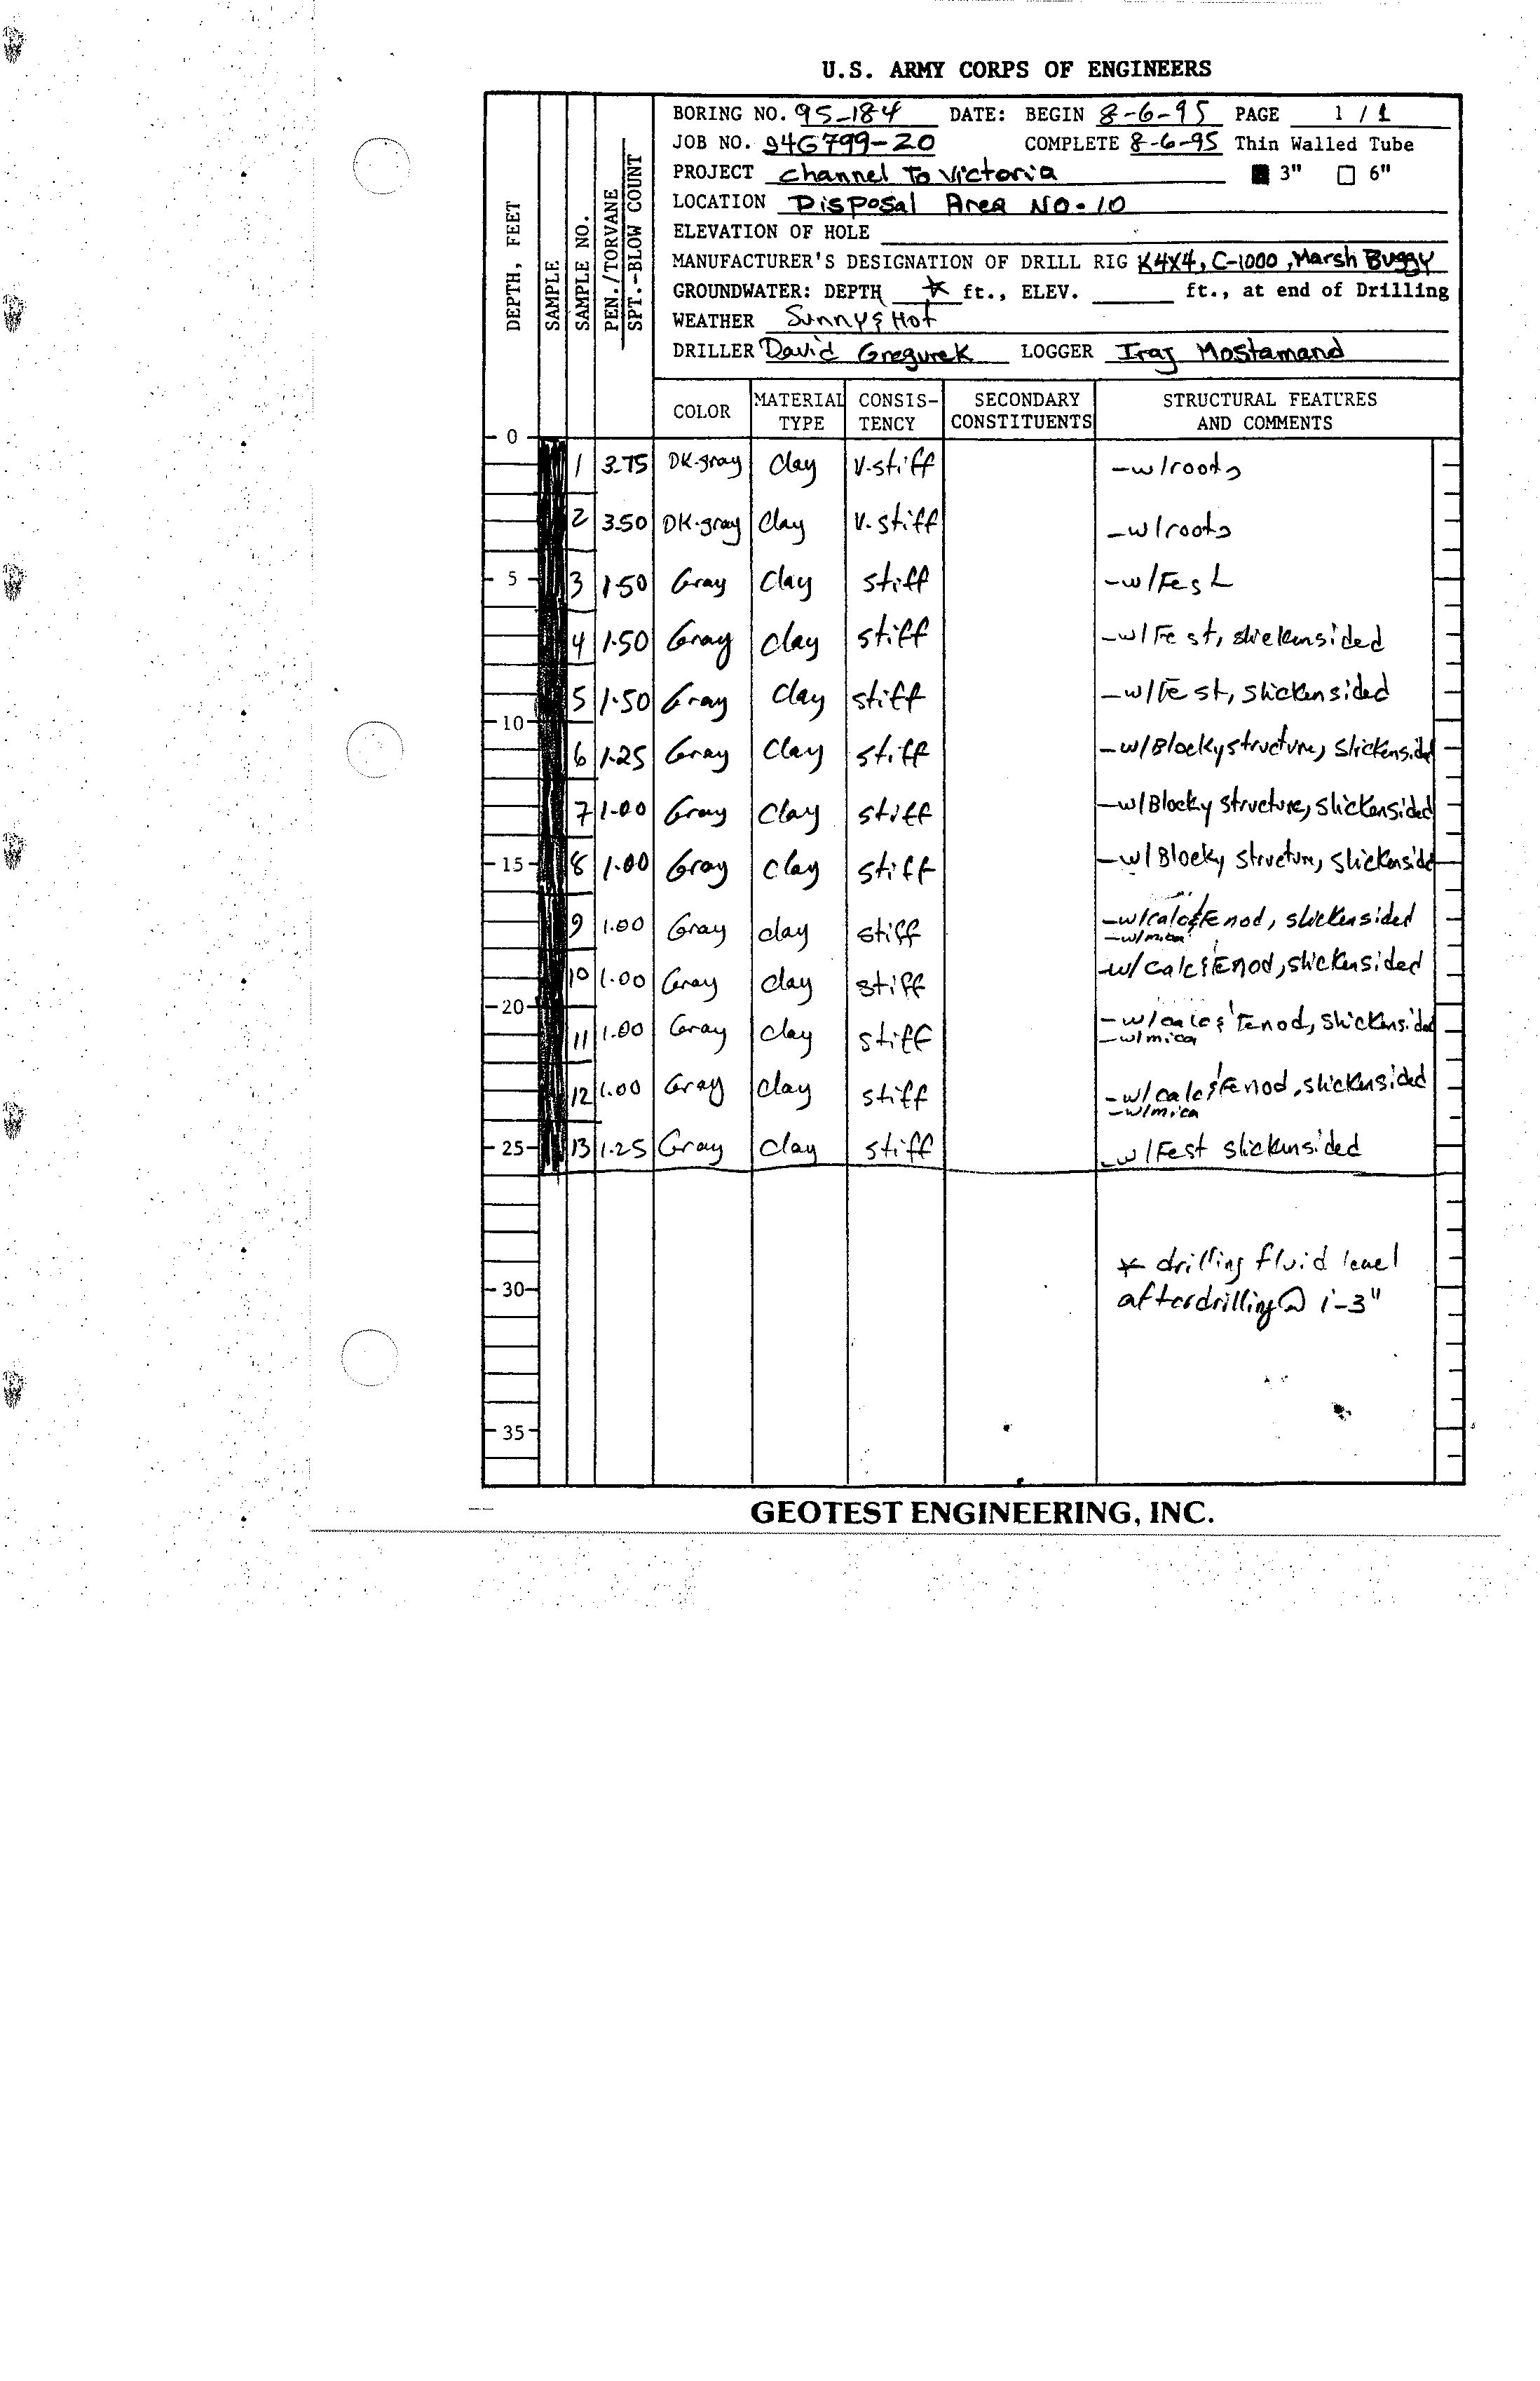 U.S. ARMY CORPS OF ENGINEERS
BORING NO. 95-184 DATE: BEGIN 8-6-95 PAGE 1 / 1
JOB NO. 94G799-20 COMPLETE 8-6-95 Thin Walled Tube
PROJECT channel To Victoria 3" 6"
LOCATION Disposal Area NO-10
ELEVATION OF HOLE
MANUFACTURER'S DESIGNATION OF DRILL RIG K4X4, C-1000, Marsh Buggy
GROUNDWATER: DEPTH * ft., ELEV. ft., at end of Drilling
WEATHER Sunny & Hot
DRILLER David Gregurek LOGGER Iraj Mostamand
DEPTH, FEET
SAMPLE
SAMPLE NO.
PEN./TORVANE
SPT.-BLOW COUNT
COLOR MATERIAL TYPE CONSIS-TENCY SECONDARY CONSTITUENTS STRUCTURAL FEATURES AND COMMENTS
0
1 3.75 DK-gray Clay V-stiff -w/roots
2 3.50 DK-gray Clay V-stiff -w/roots
5 3 1.50 Gray Clay stiff -w/Fe st
4 1.50 Gray clay stiff -w/Fe st, slickensided
5 1.50 Gray Clay stiff -w/Fe st, slickensided
10
6 1.25 Gray Clay stiff -w/Blocky structure, slickensided
7 1.00 Gray Clay stiff -w/Blocky structure, slickensided
15 8 1.00 Gray Clay stiff -w/Blocky structure, slickensided
9 1.00 Gray clay stiff -w/calc & Fe nod, slickensided
-w/mica
10 1.00 Gray clay stiff -w/calc & Fe nod, slickensided
20
11 1.00 Gray clay stiff -w/calc & Fe nod, slickensided
-w/mica
12 1.00 Gray clay stiff -w/calc & Fe nod, slickensided
-w/mica
25 13 1.25 Gray Clay stiff -w/Fe st slickensided
* drilling fluid level
30 after drilling @ 1'-3"
35
GEOTEST ENGINEERING, INC.